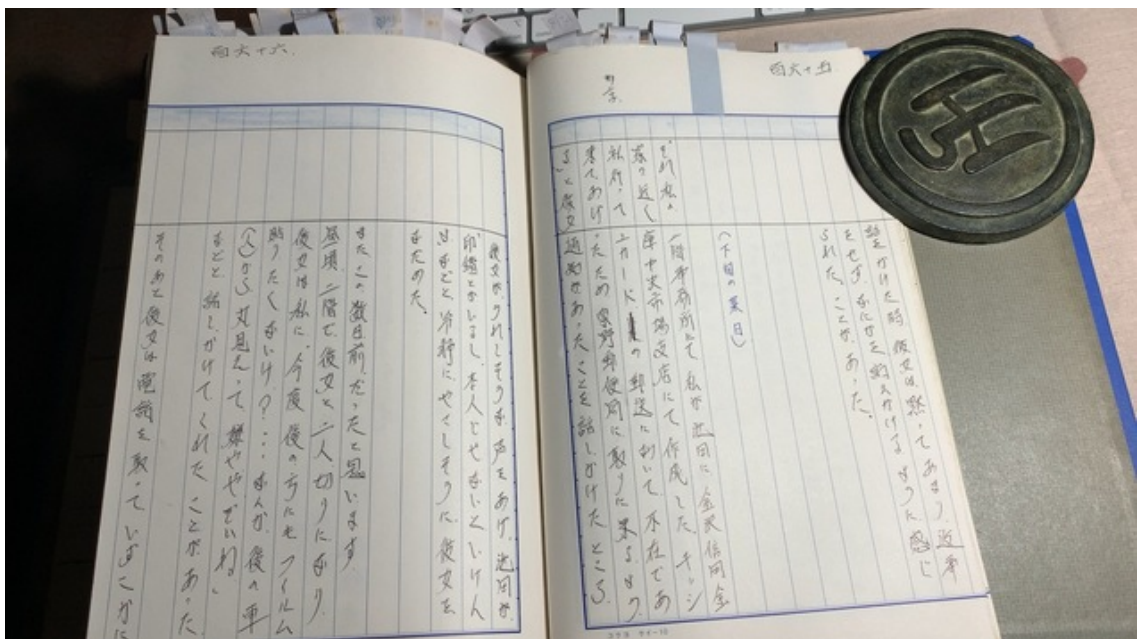 百六十五
話をかけた時、彼女は黙ってあまり、返事
をせず、なにかを訴えかけるような感じ
られた、ことが、あった。
(下目の某日)
二階事務所にて、私が池田に金沢信用金
庫中央市場支店にて作成した、キャッシ
ュカードの郵送において、不在であ
ったため泉野郵便局に取りに来るよう
通知があったことを話しかけたところ、
それ、私の
家の近く
私行って
きてあげ
る」と彼女
コクヨ ケイ-10
百六十六.
彼女が、うれしそうな、声をあげ、池田が、
「印鑑とかいるし、本人じゃないといけん
」などと、冷静に、やさしそうに、彼女を
なだめた。
またこの数日前、だったと思います
昼頃、二階で、彼女と二人切りになり、
彼女は私に、「今度後の方にもフィルム
貼りたくないけ?...なんか、後の車
(人)から丸見えって、嫌やぞいね」
などと、話しかけて、くれたことが、あった
そのあと彼女は電話を取って